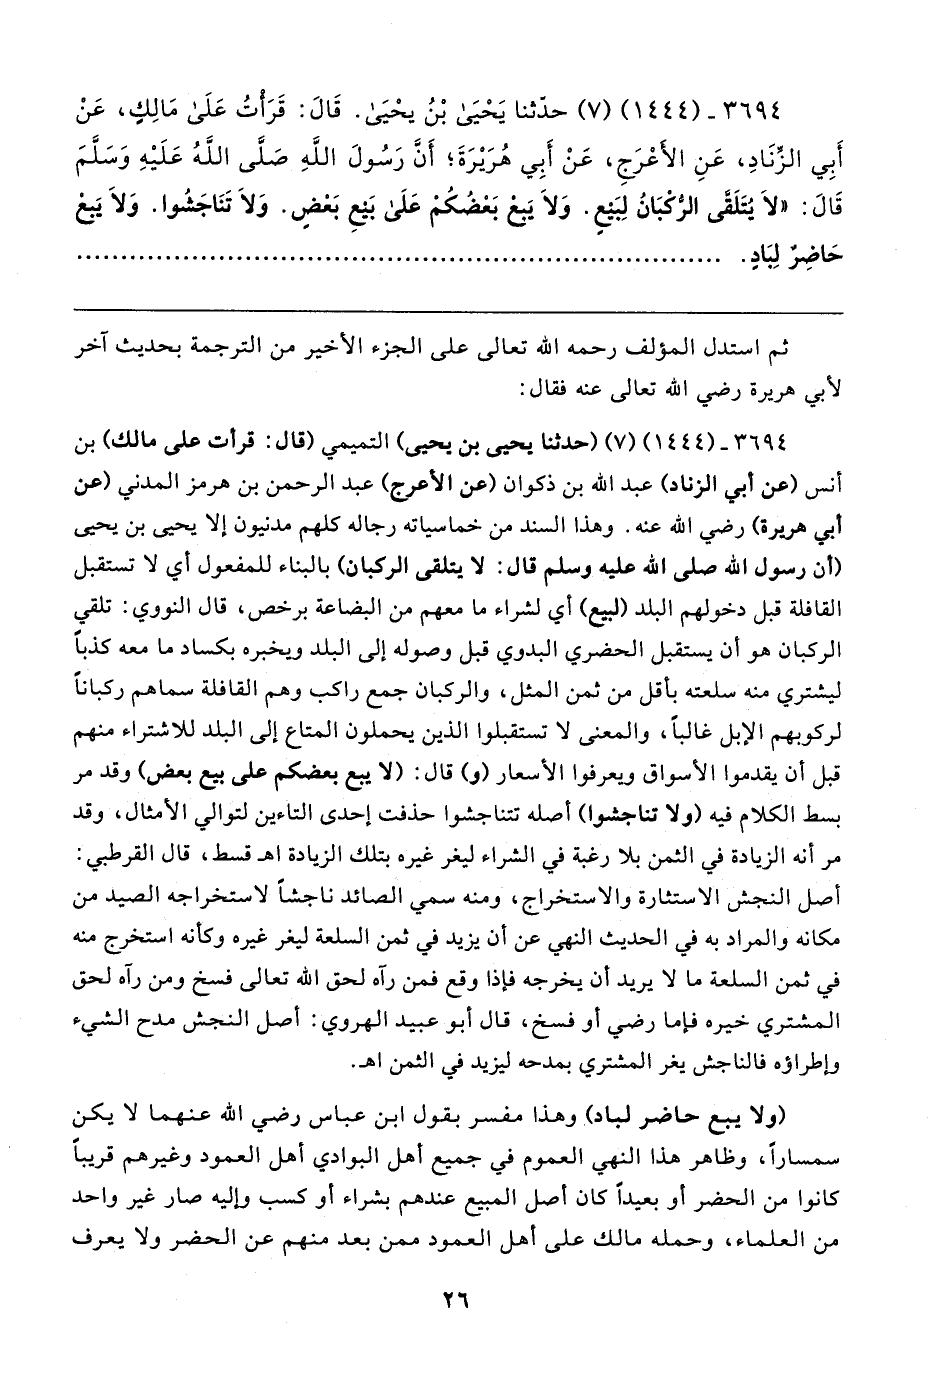 ٣٦٩٤ ـ (١٤٤٤) (٧) حدّثنا يَحْيَىٰ بْنُ يَحْيَىٰ. قَالَ: قَرَأْتُ عَلَىٰ مَالِكٍ، عَنْ
أَبِي الزِّنَادِ، عَنِ الأَعْرَجِ، عَنْ أَبِي هُرَيْرَةَ؛ أَنَّ رَسُولَ اللَّهِ صَلَّى اللَّهُ عَلَيْهِ وَسَلَّمَ
قَالَ: «لاَ يُتَلَقَّى الرُّكْبَانُ لِبَيْعٍ. وَلاَ يَبِعْ بَعْضُكُمْ عَلَىٰ بَيْعِ بَعْضٍ. وَلاَ تَنَاجَشُوا. وَلاَ يَبِعْ
حَاضِرٌ لِبَادٍ. ......................................................................
ثم استدل المؤلف رحمه الله تعالى على الجزء الأخير من الترجمة بحديث آخر
لأبي هريرة رضي الله تعالى عنه فقال:
٣٦٩٤ ـ (١٤٤٤) (٧) (حدثنا يحيى بن يحيى) التميمي (قال: قرأت على مالك) بن
أنس (عن أبي الزناد) عبد الله بن ذكوان (عن الأعرج) عبد الرحمن بن هرمز المدني (عن
أبي هريرة) رضي الله عنه. وهذا السند من خماسياته رجاله كلهم مدنيون إلا يحيى بن يحيى
(أن رسول الله صلى الله عليه وسلم قال: لا يتلقى الركبان) بالبناء للمفعول أي لا تستقبل
القافلة قبل دخولهم البلد (لبيع) أي لشراء ما معهم من البضاعة برخص، قال النووي: تلقي
الركبان هو أن يستقبل الحضري البدوي قبل وصوله إلى البلد ويخبره بكساد ما معه كذباً
ليشتري منه سلعته بأقل من ثمن المثل، والركبان جمع راكب وهم القافلة سماهم ركباناً
لركوبهم الإبل غالباً، والمعنى لا تستقبلوا الذين يحملون المتاع إلى البلد للاشتراء منهم
قبل أن يقدموا الأسواق ويعرفوا الأسعار (و) قال: (لا يبع بعضكم على بيع بعض) وقد مر
بسط الكلام فيه (ولا تناجشوا) أصله تتناجشوا حذفت إحدى التاءين لتوالي الأمثال، وقد
مر أنه الزيادة في الثمن بلا رغبة في الشراء ليغر غيره بتلك الزيادة اهـ قسط، قال القرطبي:
أصل النجش الاستثارة والاستخراج، ومنه سمي الصائد ناجشاً لاستخراجه الصيد من
مكانه والمراد به في الحديث النهي عن أن يزيد في ثمن السلعة ليغر غيره وكأنه استخرج منه
في ثمن السلعة ما لا يريد أن يخرجه فإذا وقع فمن رآه لحق الله تعالى فسخ ومن رآه لحق
المشتري خيره فإما رضي أو فسخ، قال أبو عبيد الهروي: أصل النجش مدح الشيء
وإطراؤه فالناجش يغر المشتري بمدحه ليزيد في الثمن اهـ.
(ولا يبع حاضر لباد) وهذا مفسر بقول ابن عباس رضي الله عنهما لا يكن
سمساراً، وظاهر هذا النهي العموم في جميع أهل البوادي أهل العمود وغيرهم قريباً
كانوا من الحضر أو بعيداً كان أصل المبيع عندهم بشراء أو كسب وإليه صار غير واحد
من العلماء، وحمله مالك على أهل العمود ممن بعد منهم عن الحضر ولا يعرف
٢٦